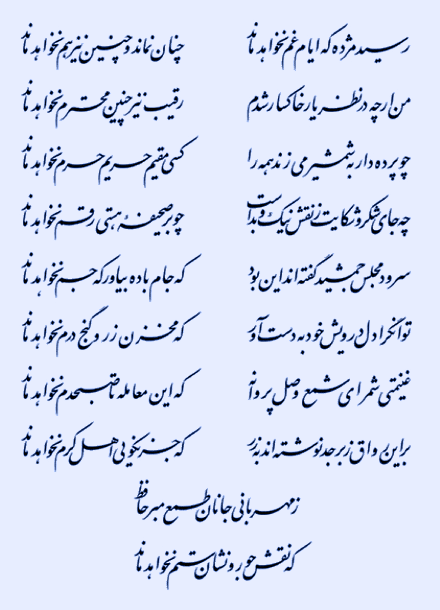 رسید مژده که ایام غم نخواهد ماند چنان نماند و چنین نیز هم نخواهد ماند
من ارچه در نظر یار خاکسار شدم رقیب نیز چنین محترم نخواهد ماند
چو پرده دار به شمشیر می زند همه را کسی مقیم حریم حرم نخواهد ماند
چه جای شکر و شکایت ز نقش نیک و بد است چو بر صحیفه هستی رقم نخواهد ماند
سرود مجلس جمشید گفته اند این بود که جام باده بیاور که جم نخواهد ماند
توانگرا دل درویش خود به دست آور که مخزن زر و گنج درم نخواهد ماند
غنیمتی شمر ای شمع وصل پروانه که این معامله تا صبحدم نخواهد ماند
براین رواق زبرجد نوشته اند به زر که جز نکویی اهل کرم نخواهد ماند
ز مهربانی جانان طمع مبر حافظ
که نقش جور و نشان ستم نخواهد ماند